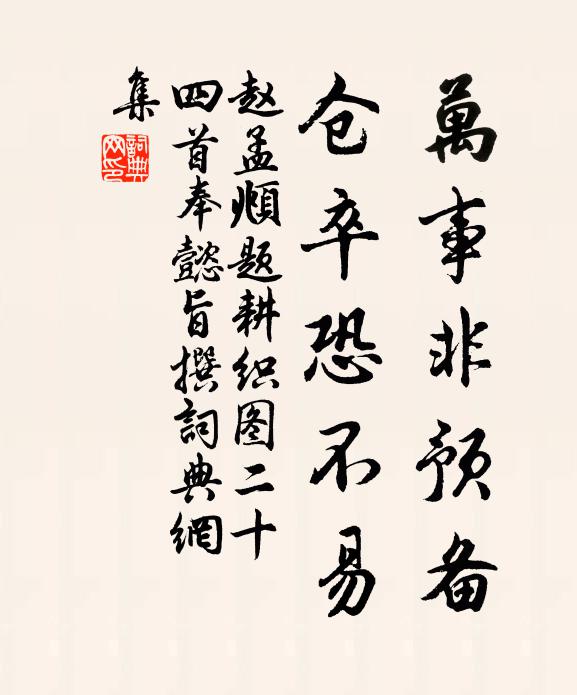 萬事非预备
仓卒恐不易
赵孟頫题耕织图二十
四首奉懿旨撰詞典網
集
詞典
网印